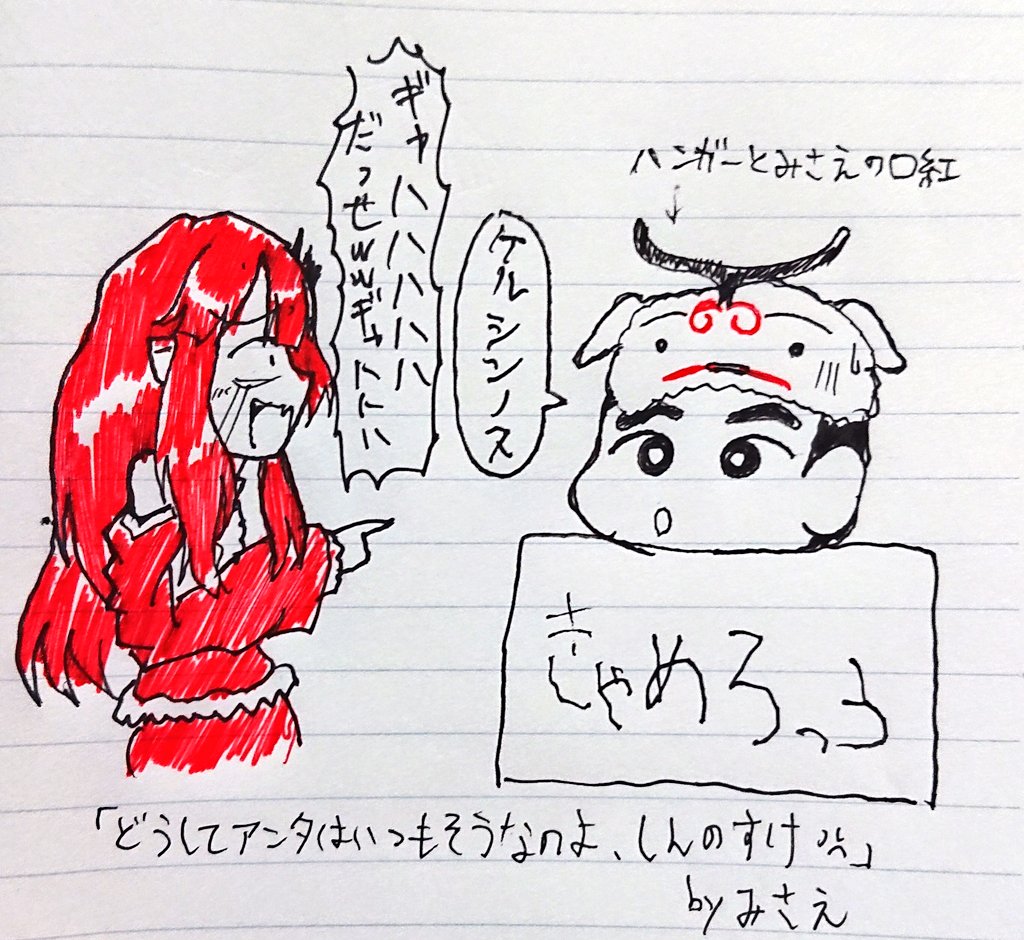 ギャハハハハハ
だっせwwギャハハハ
ケルシンノス
ハンガーとみさえの口紅
きゃめろっろ
「どうしてアンタはいつもそうなのよ、しんのすけ💢」
byみさえ